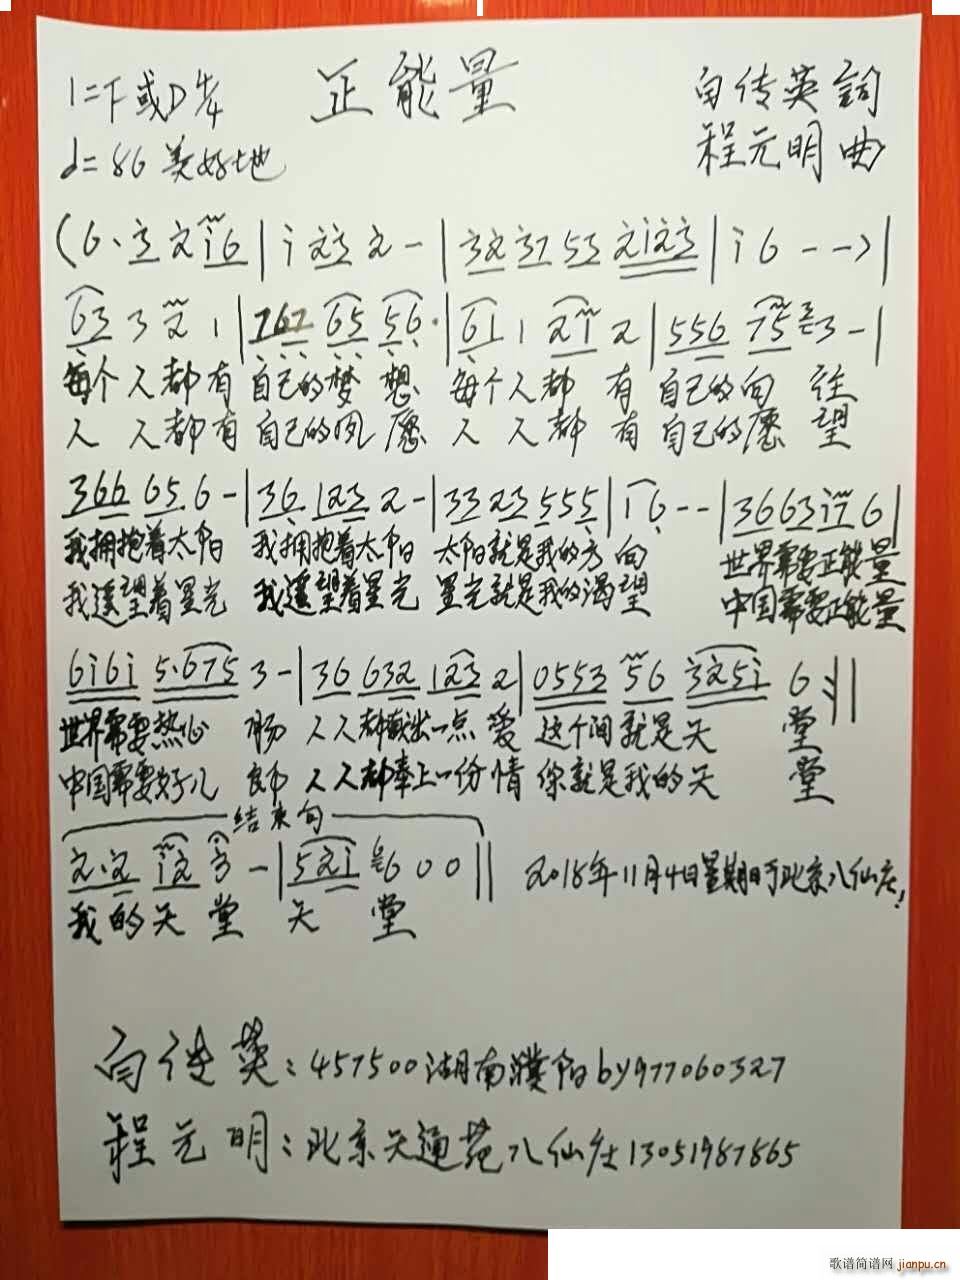 正能量
1=F或D 4/4
白传英 詞
♩=86 美好地
程元明 曲
(6· 3 2 i6 | i 23 2 - | 32 37 53 2123 | i 6 - - ) |
63 3 2 1 | 767 65 56· | 61 1 21 2 | 556 75 3 - |
每个人都有 自己的梦想 每个人都有 自己的向往
人人都有 自己的夙愿 人人都有 自己的愿望
366 656 - | 36 123 2 - | 33 23 555 | 1 6 - - | 3663 i7 6 |
我拥抱着太阳 我拥抱着太阳 太阳就是我的方向 世界需要正能量
我遥望着星光 我遥望着星光 星光就是我的渴望 中国需要正能量
6i6i 5·675 3 - | 36 632 123 2 | 0553 56 325i 6 :||
世界需要热心肠 人人都献出一点爱 这个间就是天堂
中国需要好儿郎 人人都奉上一份情 你就是我的天堂
结束句
2·2 i2 3 - | 52i 6 0 0 ||
2018年11月4日星期日于北京八仙庄!
我的天堂 天堂
白传英:457500湖南濮阳by977060327
程元明:北京天通苑八仙庄13051987865
歌谱简谱网 jianpu.cn